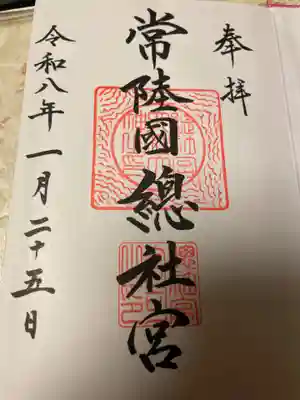 奉拝
常陸國總社宮
令和八年一月二十五日